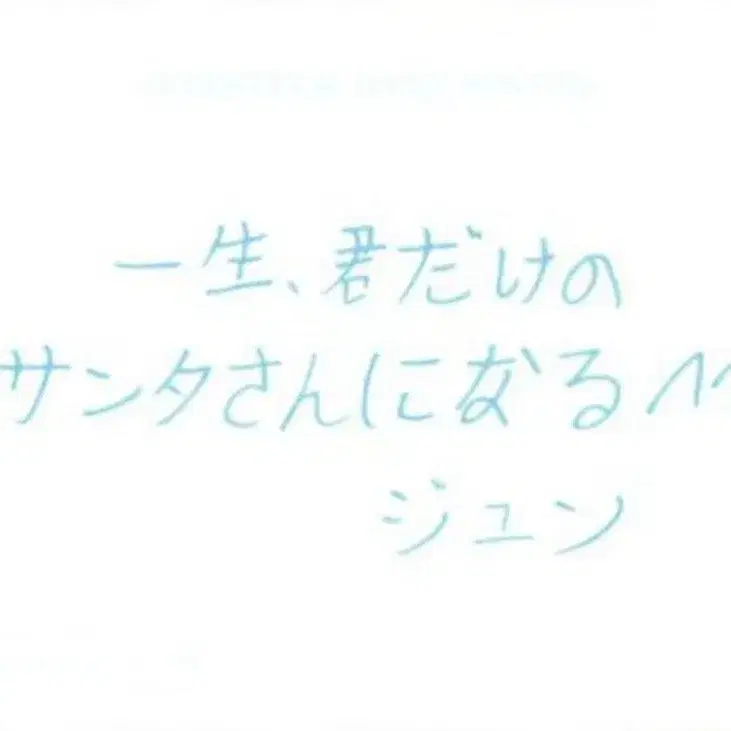 一生、君だけの
サンタさんになる^^
ジュン